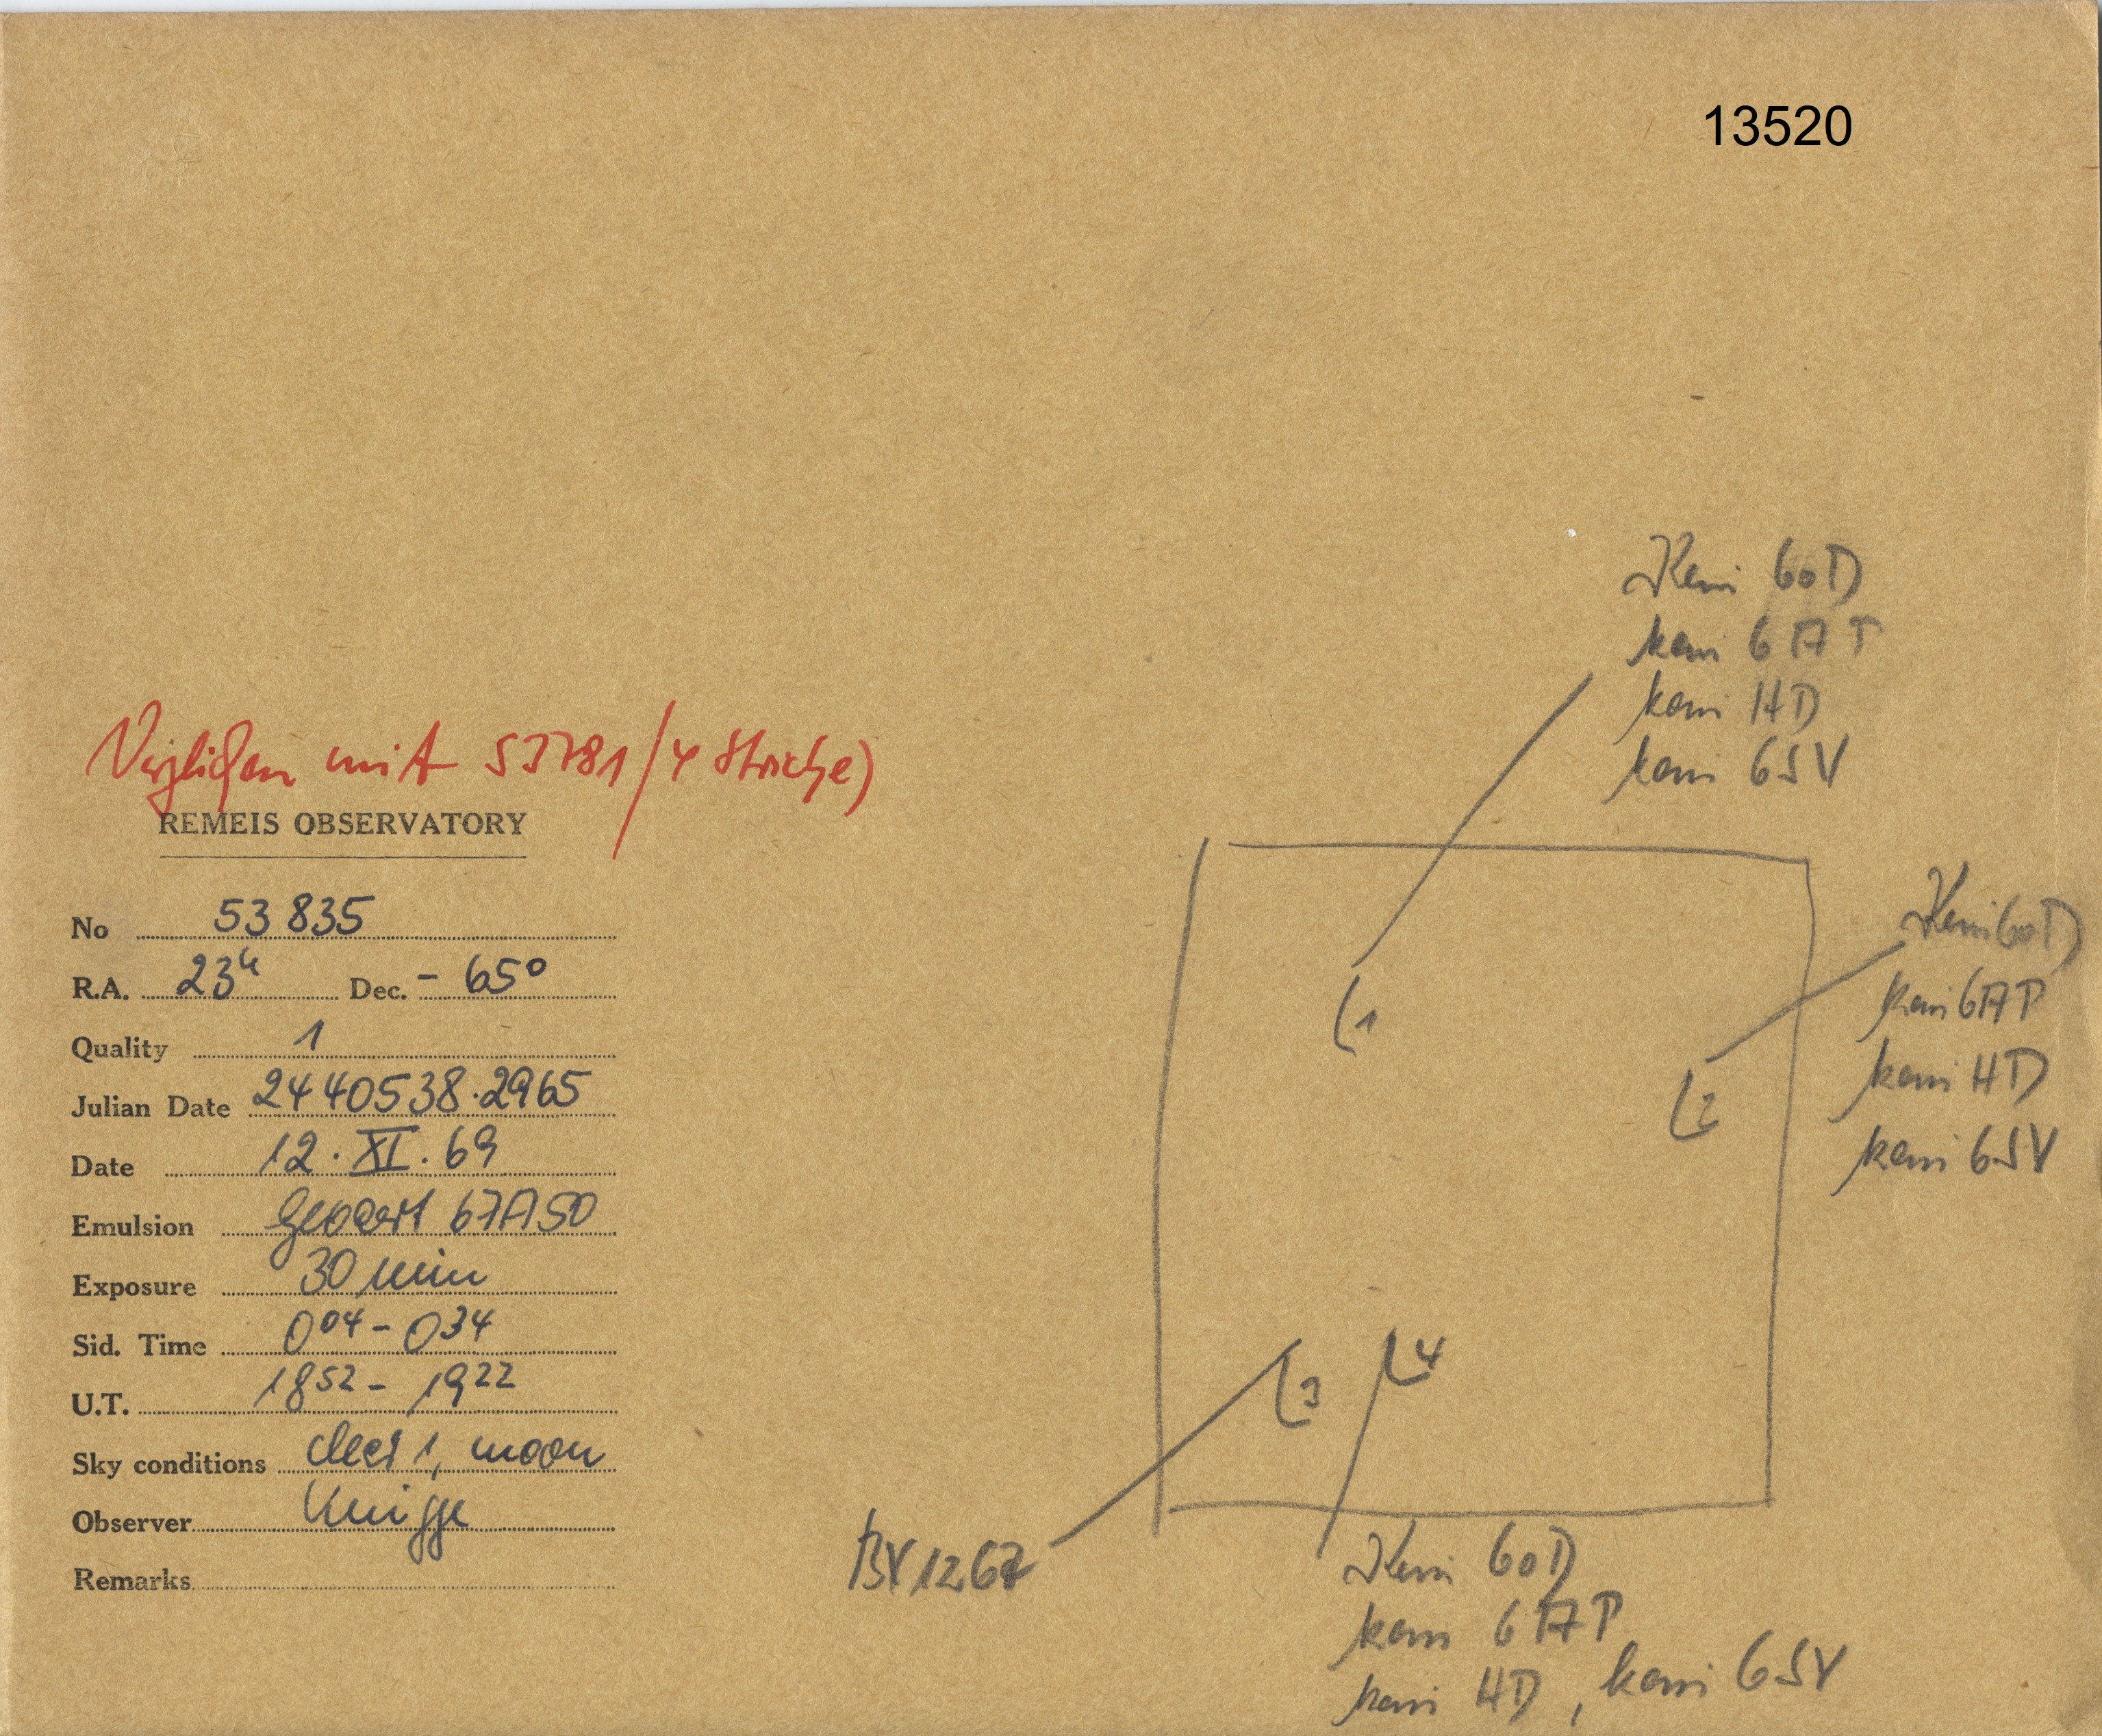 13520
Kein GoD
kein GAP
kein HD
kein GSV
Verglichen mit 53781 (4 Striche)
REMEIS OBSERVATORY
No 53835
R.A. 23h Dec. - 65°
Quality 1
Julian Date 2440538.2965
Date 12. XI. 69
Emulsion Gevaert 67A50
Exposure 30 min
Sid. Time 0 04 - 0 34
U.T. 18 52 - 19 22
Sky conditions clear 1, moon
Observer Knigge
Remarks
1
Kein GoD
kein GAP
kein HD
kein GSV
2
3
4
BV 1267
Kein GoD
kein GAP
kein HD, kein GSV